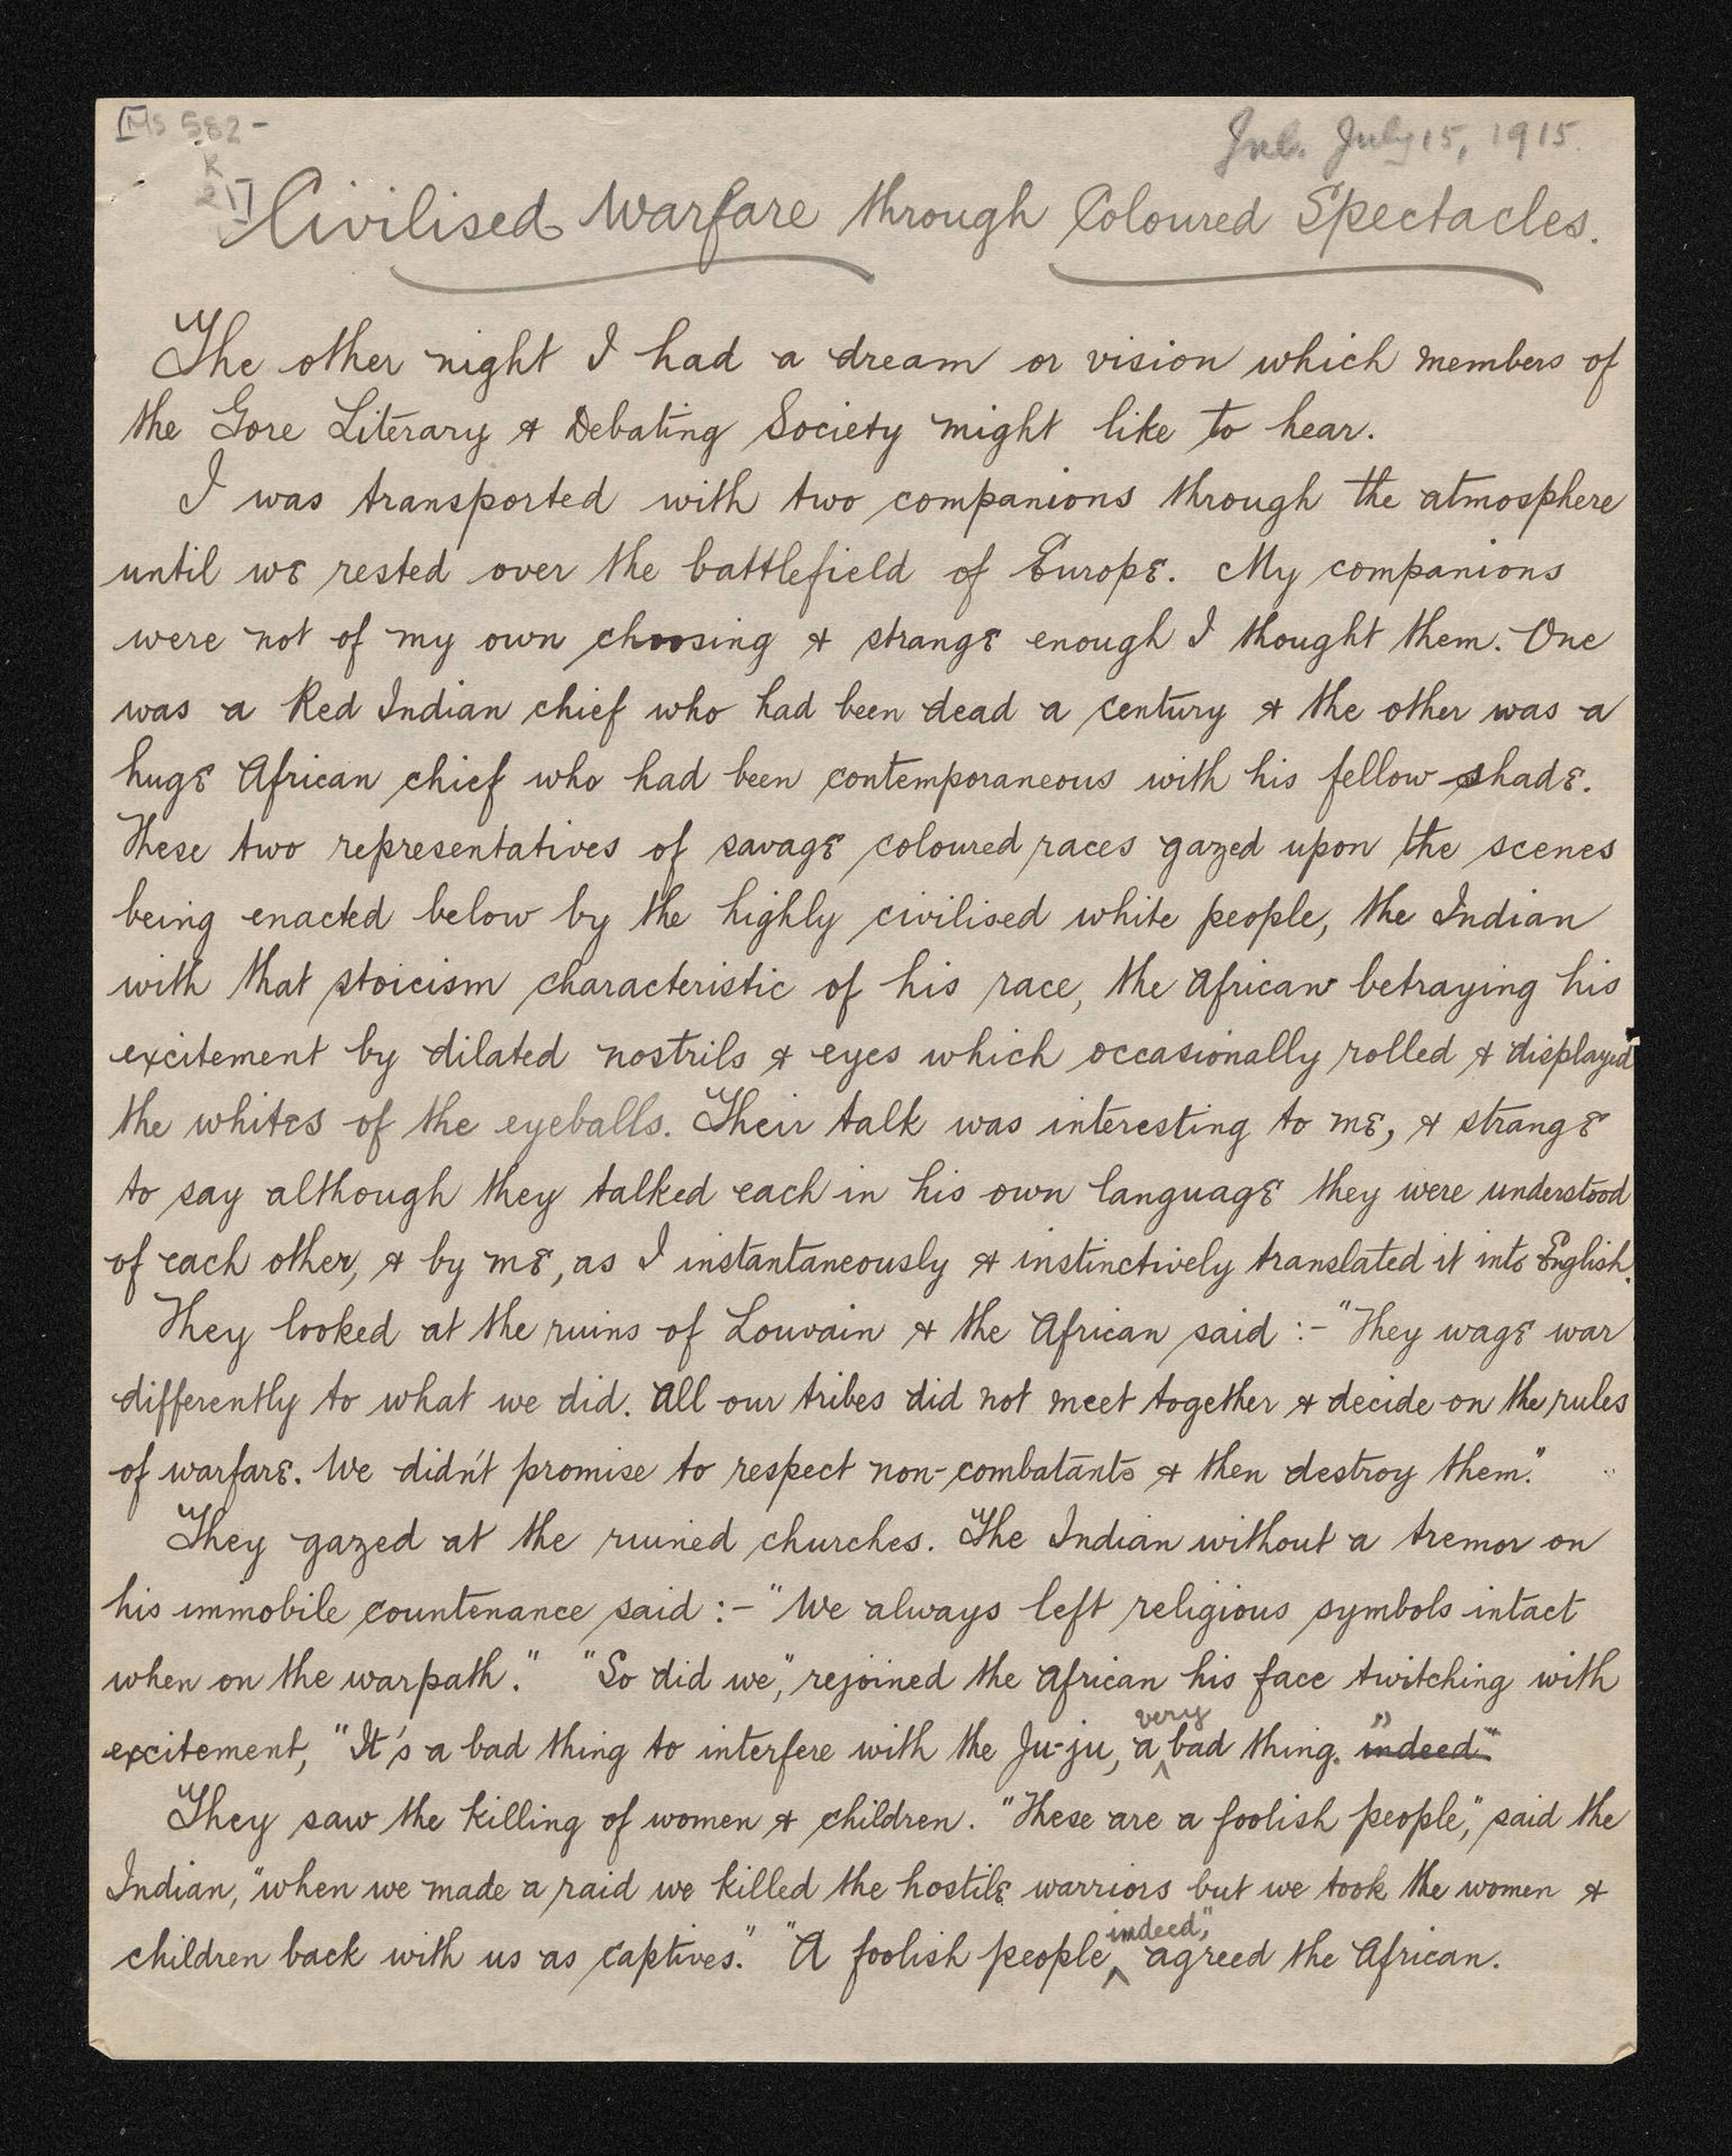 [Ms 582-
K
2/7]
Jnl. July 15, 1915.
Civilised Warfare through Coloured Spectacles.
The other night I had a dream or vision which members of
the Gore Literary & Debating Society might like to hear.
I was transported with two companions through the atmosphere
until we rested over the battlefield of Europe. My companions
were not of my own choosing & strange enough I thought them. One
was a Red Indian chief who had been dead a century & the other was a
huge African chief who had been contemporaneous with his fellow shade.
These two representatives of savage coloured races gazed upon the scenes
being enacted below by the highly civilised white people, the Indian
with that stoicism characteristic of his race, the African betraying his
excitement by dilated nostrils & eyes which occasionally rolled & displayed
the whites of the eyeballs. Their talk was interesting to me, & strange
to say although they talked each in his own language they were understood
of each other, & by me, as I instantaneously & instinctively translated it into English.
They looked at the ruins of Louvain & the African said :- "They wage war
differently to what we did. All our tribes did not meet together & decide on the rules
of warfare. We didn't promise to respect non-combatants & then destroy them."
They gazed at the ruined churches. The Indian without a tremor on
his immobile countenance said :- "We always left religious symbols intact
when on the warpath." "So did we," rejoined the African his face twitching with
excitement, "It's a bad thing to interfere with the Ju-ju, a very bad thing." indeed"
They saw the killing of women & children. "These are a foolish people," said the
Indian, "when we made a raid we killed the hostile warriors but we took the women &
children back with us as captives." "A foolish people indeed," agreed the African.